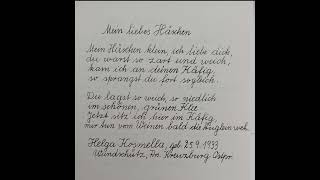 Mein liebes Häschen
Mein Häschen klein, ich liebe dich,
du warst so zart und weich,
kam ich an deinen Käfig,
so sprangst du fort sogleich.
Du lagst so weich, so niedlich
im schönen, grünen Klee
Jetzt sitz ich hier im Käfig,
mir tun vom Weinen bald die Äuglein weh.
Helga Kosmella, geb. 25.9.1933
Wundschütz, Kreuzburg